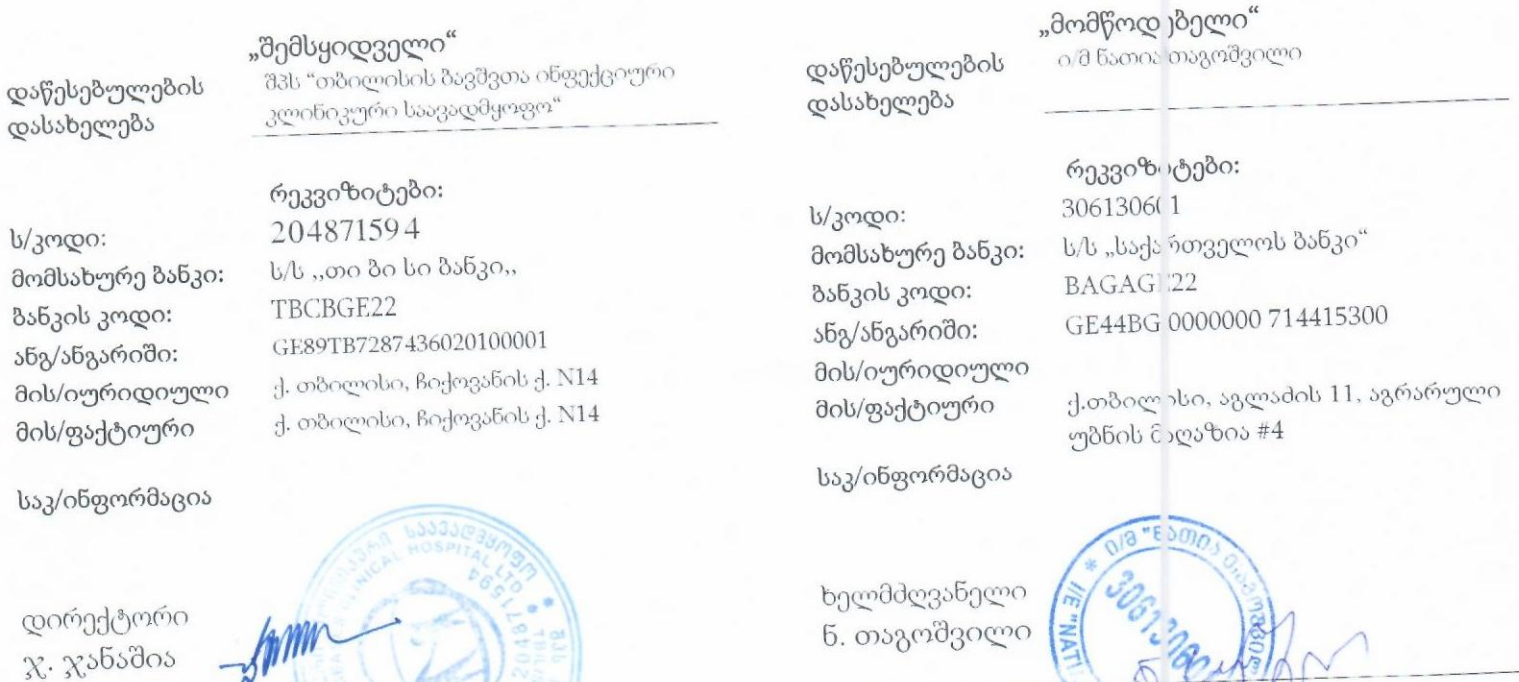 „შემსყიდველი“
დაწესებულების
დასახელება
შპს “თბილისის ბავშვთა ინფექციური
კლინიკური საავადმყოფო“
რეკვიზიტები:
ს/კოდი: 204871594
მომსახურე ბანკი: ს/ს ,,თი ბი სი ბანკი,,
ბანკის კოდი: TBCBGE22
ანგ/ანგარიში: GE89TB7287436020100001
მის/იურიდიული ქ. თბილისი, ჩიქოვანის ქ. N14
მის/ფაქტიური ქ. თბილისი, ჩიქოვანის ქ. N14
საკ/ინფორმაცია
დირექტორი
ჯ. ჯანაშია
საავადმყოფო
CLINICAL HOSPITAL LTD
204871594
„მომწოდებელი“
დაწესებულების
დასახელება
ი/მ ნათია თაგოშვილი
რეკვიზიტები:
ს/კოდი: 306130601
მომსახურე ბანკი: ს/ს „საქართველოს ბანკი“
ბანკის კოდი: BAGAGE22
ანგ/ანგარიში: GE44BG 0000000 714415300
მის/იურიდიული
მის/ფაქტიური ქ.თბილისი, აგლაძის 11, აგრარული
უბნის მაღაზია #4
საკ/ინფორმაცია
ხელმძღვანელი
ნ. თაგოშვილი
ი/მ "ნათია თაგოშვილ
I/E "NAT